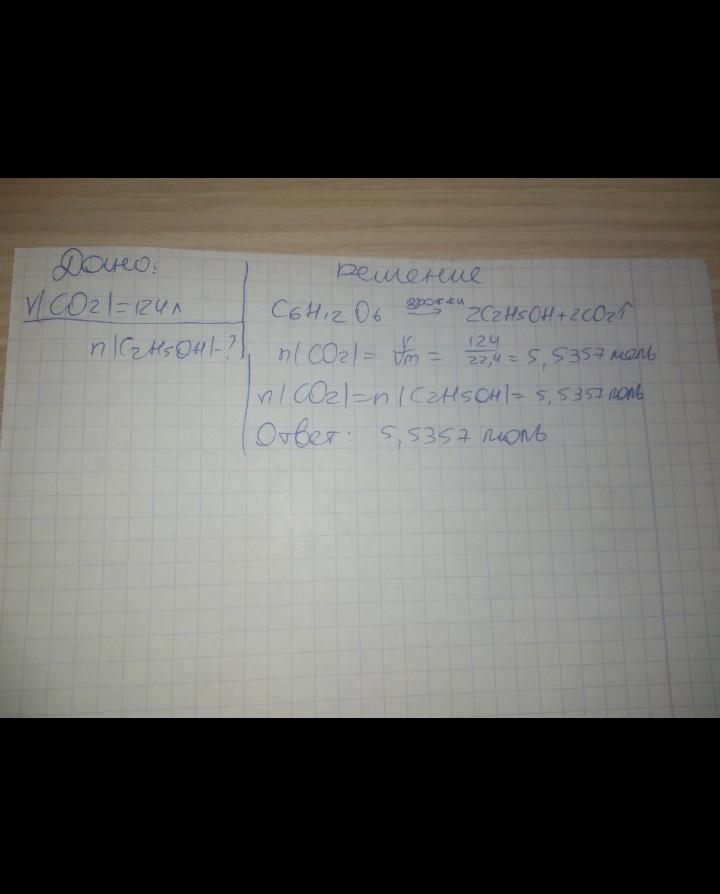 Дано:
V(CO2)=124л
n(C2H5OH)-?
решение
C6H12O6 дрожжи → 2C2H5OH+2CO2↑
n(CO2)= V/Vm = 124/22,4 = 5,5357 моль
n(CO2)=n(C2H5OH)= 5,5357 моль
Ответ: 5,5357 моль